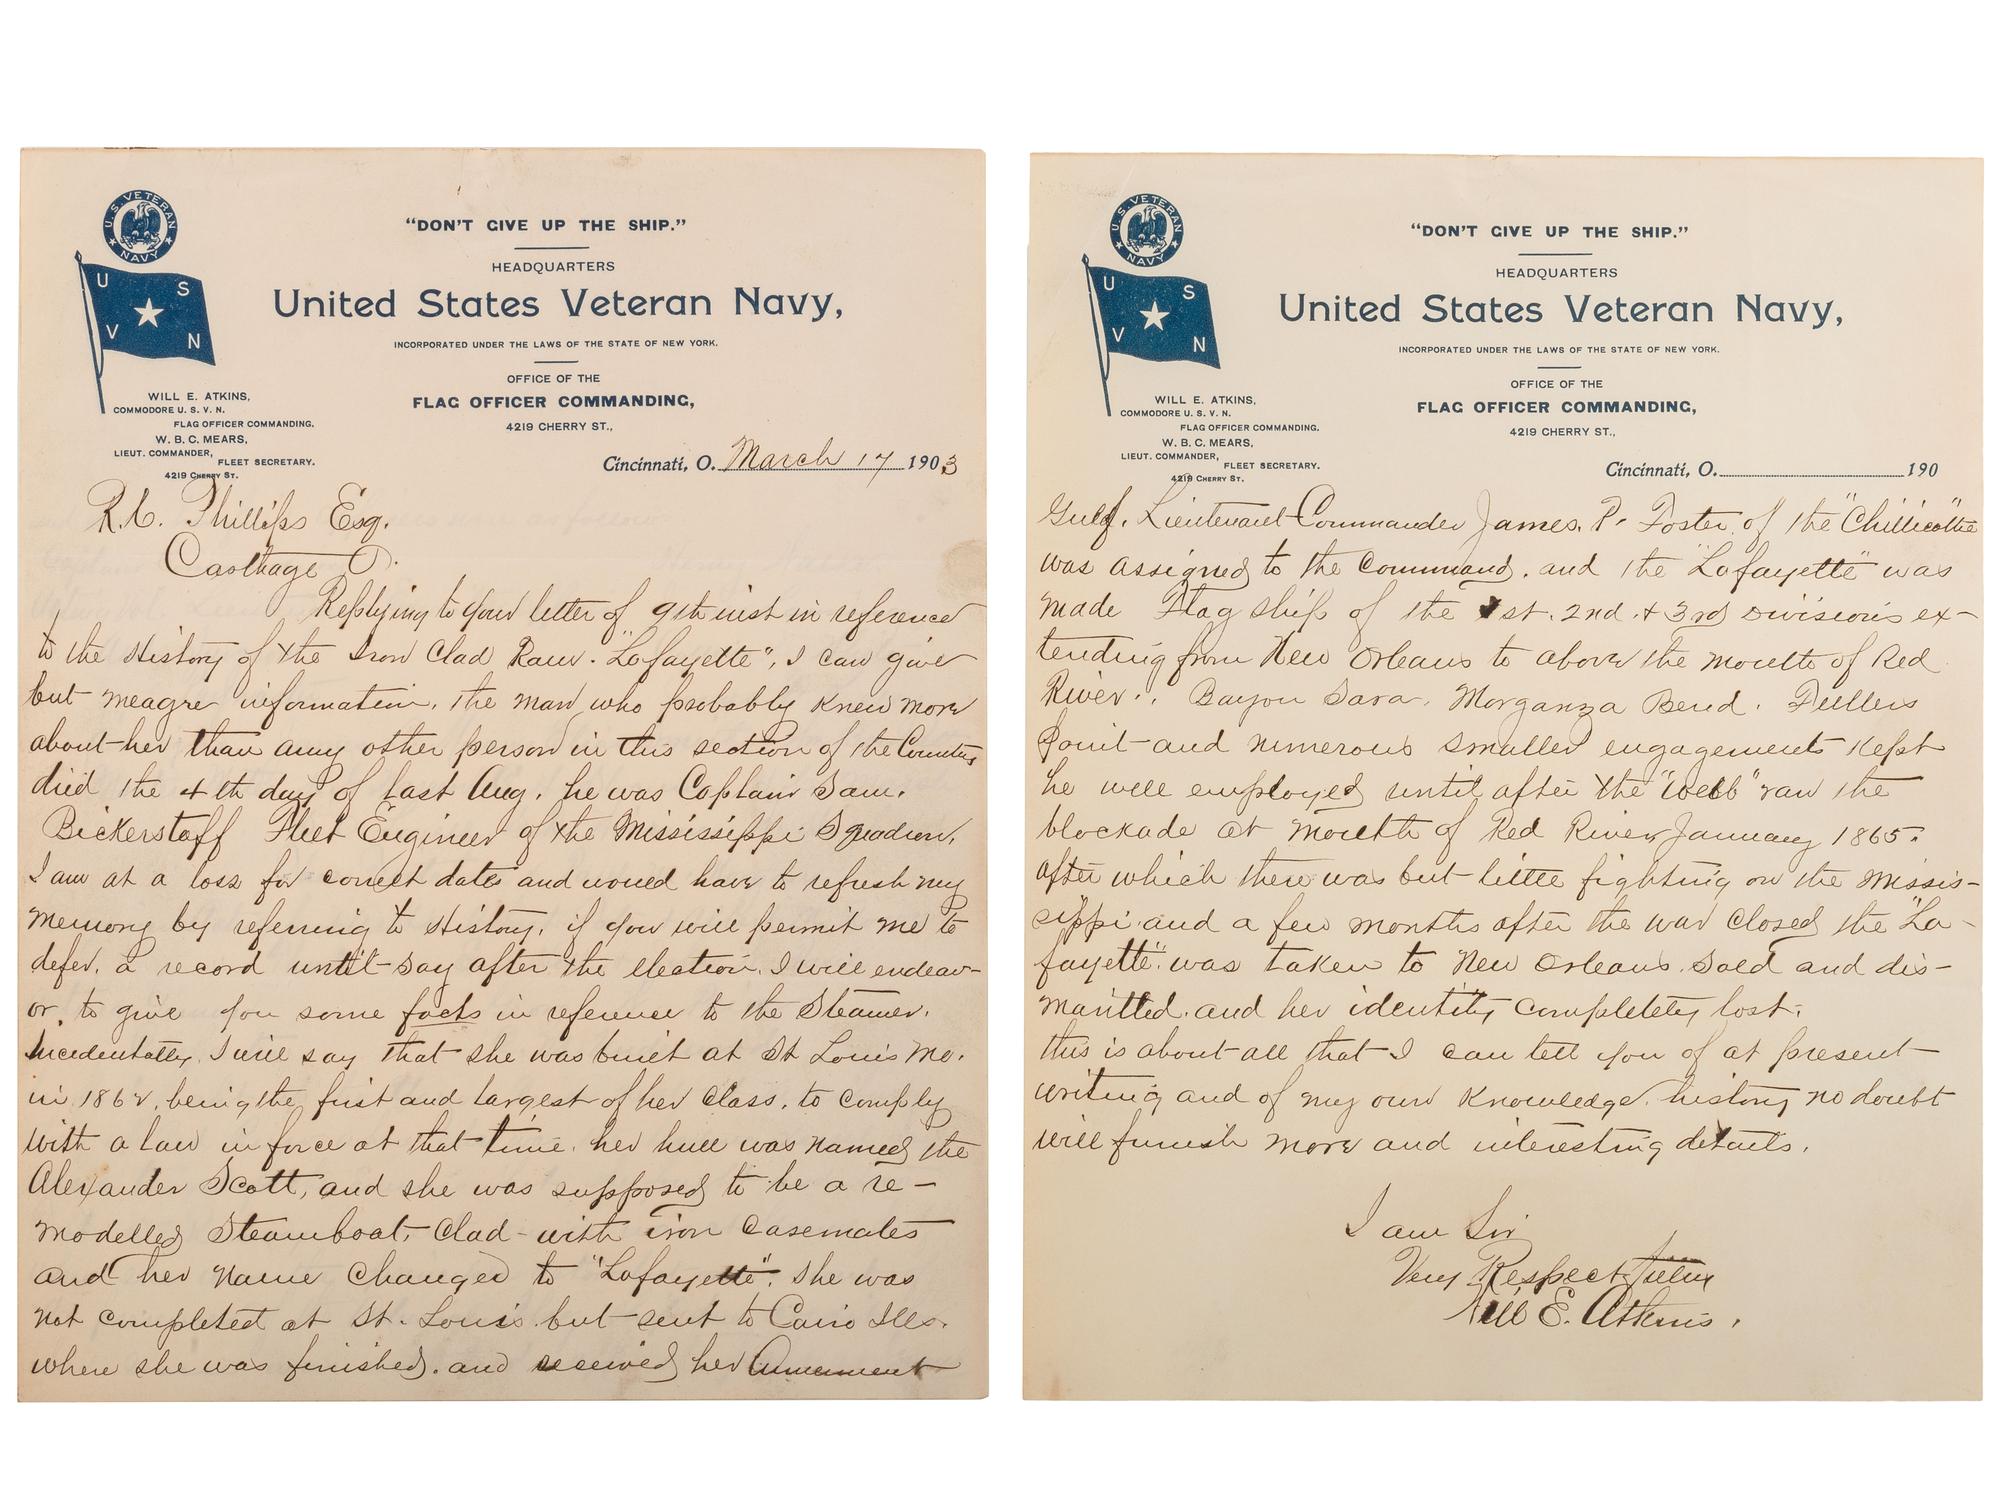 U.S. VETERAN NAVY
U S V N
"DON'T GIVE UP THE SHIP."
HEADQUARTERS
United States Veteran Navy,
INCORPORATED UNDER THE LAWS OF THE STATE OF NEW YORK.
OFFICE OF THE
FLAG OFFICER COMMANDING,
4219 CHERRY ST.,
WILL E. ATKINS,
COMMODORE U. S. V. N.
FLAG OFFICER COMMANDING.
W. B. C. MEARS,
LIEUT. COMMANDER,
FLEET SECRETARY.
4219 CHERRY ST.
Cincinnati, O. March 17 1903
R.C. Phillips Esq.
Carthage O.
Replying to your letter of 9th inst in reference
to the History of the Iron Clad Ram. "Lafayette", I can give
but meagre information, the man who probably knew more
about her than any other person in this section of the Country
died the 4th day of last Aug. he was Captain Sam.
Bickerstaff Fleet Engineer of the Mississippi Squadron.
I am at a loss for correct dates and would have to refresh my
memory by referring to History, if you will permit me to
defer. a record until say after the election. I will endeav-
or, to give you some facts in reference to the Steamer.
Incedentally, I will say that she was built at St Louis Mo.
in 1862, being the first and largest of her class, to comply
with a law in force at that time. her hull was named the
Alexander Scott, and she was supposed to be a re-
modelled Steamboat, Clad with iron casemates
and her name changed to "Lafayette". She was
not completed at St. Louis but sent to Cairo Ills.
where she was finished. and received her Armament
U.S. VETERAN NAVY
U S V N
"DON'T GIVE UP THE SHIP."
HEADQUARTERS
United States Veteran Navy,
INCORPORATED UNDER THE LAWS OF THE STATE OF NEW YORK.
OFFICE OF THE
FLAG OFFICER COMMANDING,
4219 CHERRY ST.,
WILL E. ATKINS,
COMMODORE U. S. V. N.
FLAG OFFICER COMMANDING.
W. B. C. MEARS,
LIEUT. COMMANDER,
FLEET SECRETARY.
4219 CHERRY ST.
Cincinnati, O. 190
Gulf. Lieutenant Commander James. P. Foster of the "Chillicothe"
was assigned to the Command. and the "Lafayette" was
made Flag ship of the 1st. 2nd. & 3rd Divisions ex-
tending from New Orleans to above the mouth of Red
River. Bayou Sara. Morganza Bend. Tullers
Point and numerous smaller engagements kept
he well employed until after the "Webb" ran the
blockade at mouth of Red River, January 1865.
after which there was but little fighting on the Missis-
sippi and a few months after the war closed the "La-
fayette" was taken to New Orleans. Sold and dis-
mantled. and her identity completely lost.
this is about all that I can tell you of at present
writing and of my own knowledge. history no doubt
will furnish more and interesting details.
I am Sir
Very Respectfully
Will E. Atkins.